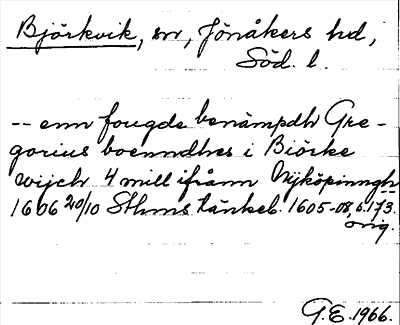 Björkvik, sn, Jönåkers hd,
Söd. l.
-- enn fougde benämpdh Gre-
gorius boenndhes i Biörke
wijch 4 mill ifrånn Nyköpinngh --
1606 20/10 Sthms tänkeb. 1605-08, s. 173.
orig.
G.E. 1966.